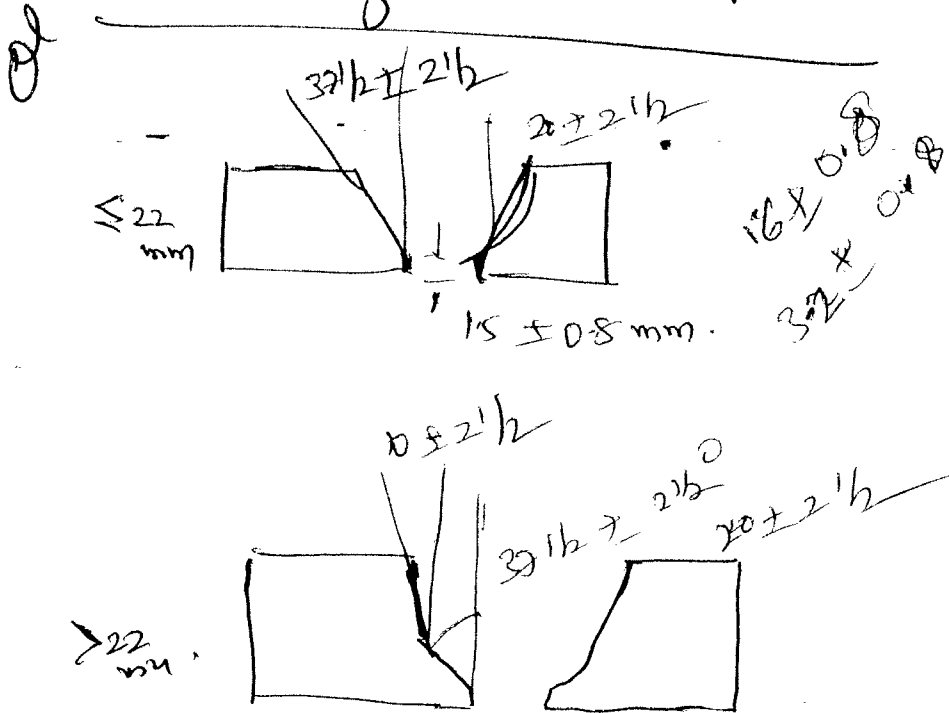 37 1/2 ± 2 1/2
20 ± 2 1/2
≤ 22
mm
1.5 ± 0.8 mm.
10 ± 2 1/2
37 1/2 ± 2 1/2°
20 ± 2 1/2
> 22
mm.